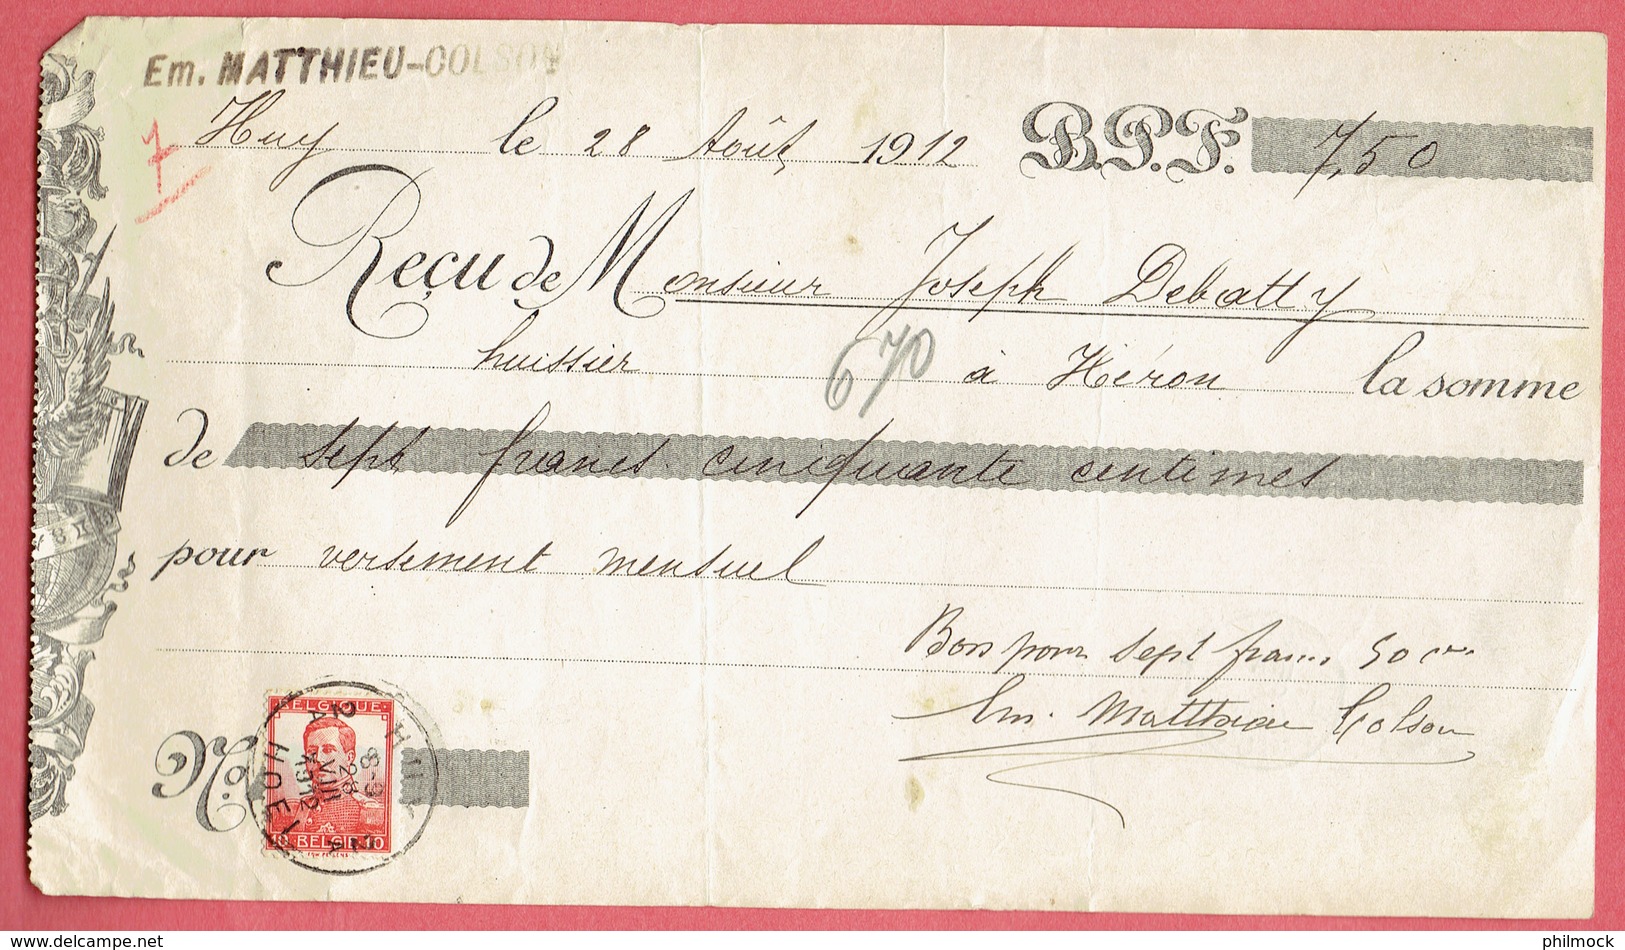 Em. MATTHIEU-COLSON
7
Huy le 28 Août 1912 B.P.F. 7,50
Reçu de Monsieur Joseph Debatty
huissier 670 à Héron la somme
de sept francs cinquante centimes
pour versement mensuel
Bon pour sept francs 50 cmes
Em. Matthieu Colson
No.
BELGIQUE
HUY
8-9
28
VIII
1912
HOEI
10 BELGIE 10
delcampe.net
philmock